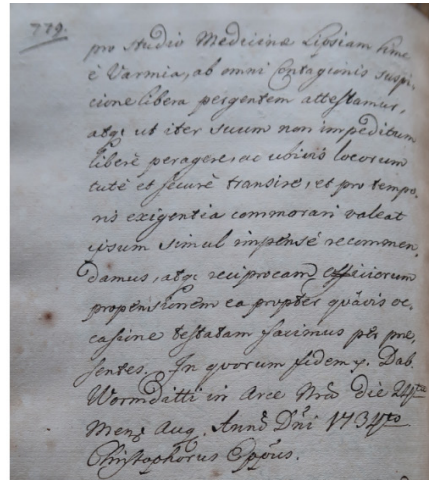 779.
pro studio Medicinæ Lipsiam hinc
è Varmia, ab omni Contagionis suspi,
cione libera pergentem attestamur,
atq; ut iter suum non impeditum
liberè peragere, ac ubivis locorum
tutè et securè transire, et pro tempo,
ris exigentia commorari valeat
ipsum simul impensè recommen,
damus, atq; reciprocam officiorum
propensionem ea propter quâvis oc,
casione testatam faximus p̄ prę
sentes. In quorum fidem Dab.
Wormditti in Arce Nrâ die 24ta
Mens Aug. Annô Dni 1734to
Christophorus Eppus.